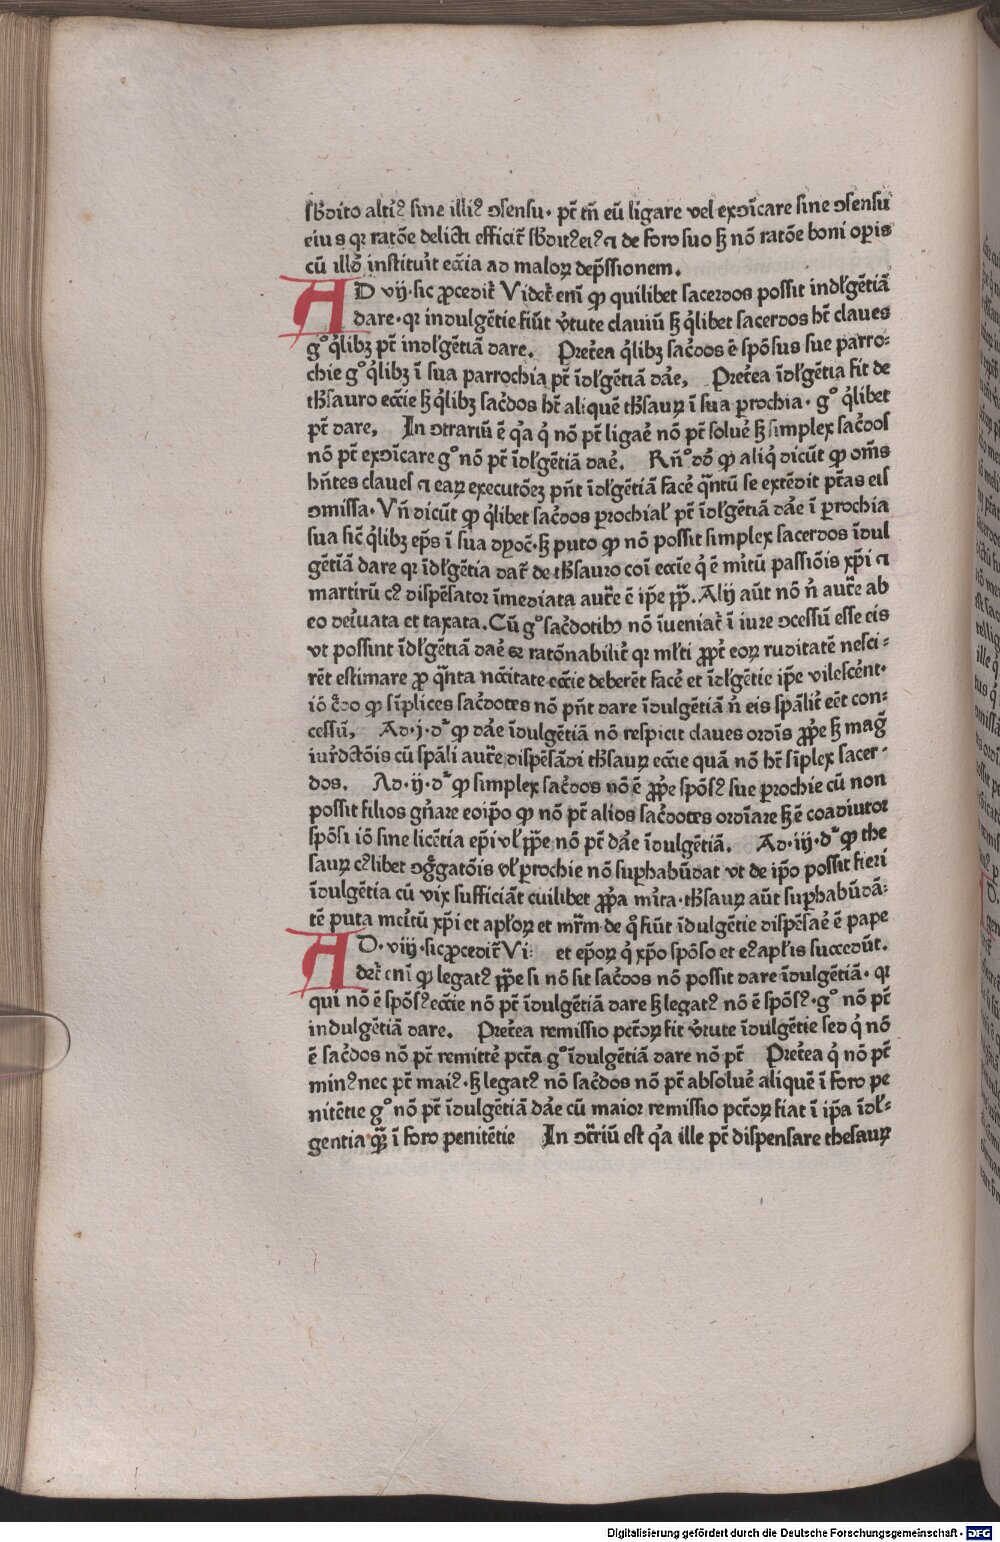 ſb̄dito alti⁹ ſine illi⁹ ↄſenſu. pt̄ tn̄ eū ligare vel exↄīcare ſine ↄſenſu
eius qꝛ ratōe delicti efficit̄ ſb̄dit⁹ ei⁹ ⁊ de foro ſuo ſꝫ nō ratōe boni opis
cū illd̄ inſtituit eccīa ad maloꝝ dep̄ſſionem.
AD vij. ſic ꝓcedit̄ Videt̄ enī ꝙ quilibet ſacerdos poſſit indl̓gētiā
dare. qꝛ indulgētie fiūt v̓tute clauiū ſꝫ q̓libet ſacerdos hꝫ claues
gº q̓libꝫ pt̄ indl̓gētiā dare. Pret̓ea q̓libꝫ ſac̓dos ē ſpōſus ſue parro⸗
chie gº q̓libꝫ ī ſua parrochia pt̄ īdl̓gētiā da̓e, Pret̓ea īdl̓gētia fit de
th̓ſauro eccīe ſꝫ q̓libꝫ ſac̓dos ht̄ aliquē th̓ſauꝝ ī ſua ꝑrochia. gº q̓libet
pt̄ dare, In ↄtrariū ē q̓a q̓ nō pt̄ ligae̓ nō pt̄ ſolue̓ ſꝫ ſimplex ſac̓doſ
nō pt̄ exↄīcare gº nō pt̄ īdl̓gētiā dae̓. Rn̄º dō̓ ꝙ aliq̓ dicūt ꝙ om̄s
hn̄tes claueſ ⁊ eaꝝ executōeꝫ pn̄t īdl̓gētiā face̓ q̄ntū ſe extēdit pt̄as eiſ
ↄmiſſa. Vn̄ dicūt ꝙ q̓libet ſac̓dos ꝑrochial̓ pt̄ īdl̓gētiā da̓e ī ꝑrochia
ſua ſic̄ q̓libꝫ ep̄s ī ſua dyoc̄. ſꝫ puto ꝙ nō poſſit ſimplex ſacerdos īdul
gētiā dare qꝛ īdl̓gētia dat̄ de th̓ſauro coī eccīe q̓ ē mi̓tū paſſiōis xp̄i ⁊
martirū c⁹ diſpēſator īmediata auct̄e ē ip̄e pp̄. Alij aūt nō n̓ auct̄e ab
eo dei̓uata et taxata. Cū gº ſac̓dotibꝰ nō īueniat̄ ī iure ↄceſſū eſſe eis
vt poſſint īdl̓gētiā dae̓ ꝫ ratōnabilit̓ qꝛ ml̓ti ꝓpt̓ eoꝝ ruditatē neſci⸗
rēt eſtimare ꝓ q̄nta nēc̄itate eccīe deberēt face̓ et īdl̓gētie ip̄e vileſce̓nt.
iō c̓do ꝙ ſīplices ſac̓dotes nō pn̄t dare īdulgētiā n̓ eis ſpāli̓t eēt con⸗
ceſſū, Ad. j. dᵐ ꝙ da̓e īdulgētiā nō reſpicit claues ordīs ꝓp̓e ſꝫ mag̓
iur̓dctōis cū ſpāli auct̄e diſpēſādi th̓ſauꝝ eccīe quā nō ht̄ ſīplex ſacer⸗
dos. Ad. ij. dᵐ ꝙ ſimplex ſac̓dos nō ē ꝓp̓e ſpōſ⁹ ſue ꝑrochie cū non
poſſit filios gn̓are eoip̄o ꝙ nō pt̄ alios ſac̓dotes ordīare ſꝫ ē coadiutor
ſpōſi iō ſine licētia ep̄i vl̓ pp̄e nō pt̄ da̓e īdulgētiā. Ad. iij. dᵐ ꝙ the
ſauꝝ c⁹libet ↄg̓gatōis vl̓ ꝑrochie nō ſuꝑhabūdat vt de ip̄o poſſit fieri
īdulgētia cū vix ſufficiāt cuilibet ꝓp̓a mi̓ta. th̓ſauꝝ aūt ſuꝑhabūdā⸗
tē puta mei̓tū xp̄i et apl̓oꝝ et mr̄m de q̓ fiūt īdulgētie diſpēſae̓ ē pape
AD. viij. ſic ꝓcedit̄ Vi: et ep̄oꝝ q̓ xp̄o ſpōſo et e⁹ apl̓is ſuccedūt.
det̄ enī ꝙ legat⁹ pp̄e ſi nō ſit ſac̓dos nō poſſit dare īdulgētiā. qꝛ
qui nō ē ſpōſ⁹ eccīe nō pt̄ īdulgētiā dare ſꝫ legat⁹ nō ē ſpōſ⁹. gº nō pt̄
indulgētiā dare. Pret̓ea remiſſio pctōꝝ fit v̓tute īdulgētie ſed q̓ nō
ē ſac̓dos nō pt̄ remitte̓ pctā gº īdulgētiā dare nō pt̄ Pret̓ea q̓ nō pt̄
min⁹ nec pt̄ mai⁹. ſꝫ legat⁹ nō ſac̓dos nō pt̄ abſolue̓ aliquē ī foro pe
nitētie gº nō pt̄ īdulgētiā da̓e cū maior remiſſio pctōꝝ fiat ī ip̄a īdl̓⸗
gentia q̄ꝫ ī foro penitētie In ↄt̄riū eſt q̓a ille pt̄ diſpenſare theſauꝝ
Digitalisierung gefördert durch die Deutsche Forschungsgemeinschaft - DFG